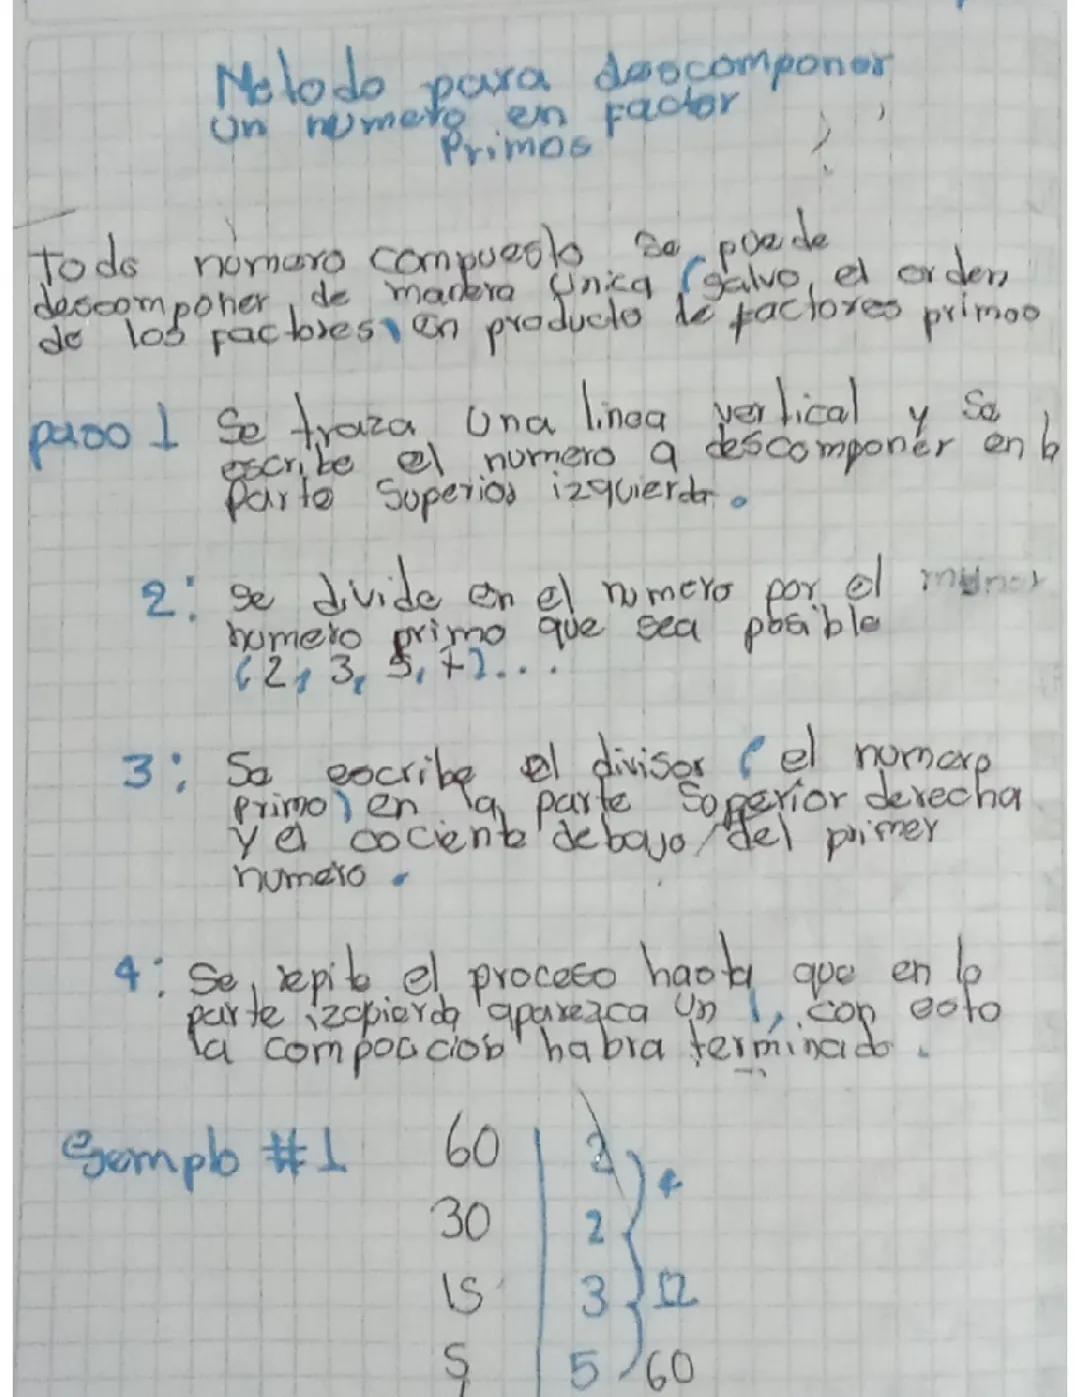 Metodo para descomponer
un numero en factor
Primos
Todo número compuesto se puede
descomponer, de manera única (salvo, el orden
de los factores) en producto de factores primos
paso 1 Se traza una linea vertical y se
escribe el numero a descomponer en la
parte superior izquierda.
2: se divide en el numero por el menor
numero primo que sea posible
(2, 3, 5, 7)...
3: Se escribe el divisor (el numero
primo) en la parte superior derecha
y el cociente debajo del primer
numero.
4: Se repite el proceso hasta que en la
parte izquierda aparezca un 1, con esto
la habra terminado.
Ejemplo #1 60 2
4
30 2
15 3 12
5 5 60